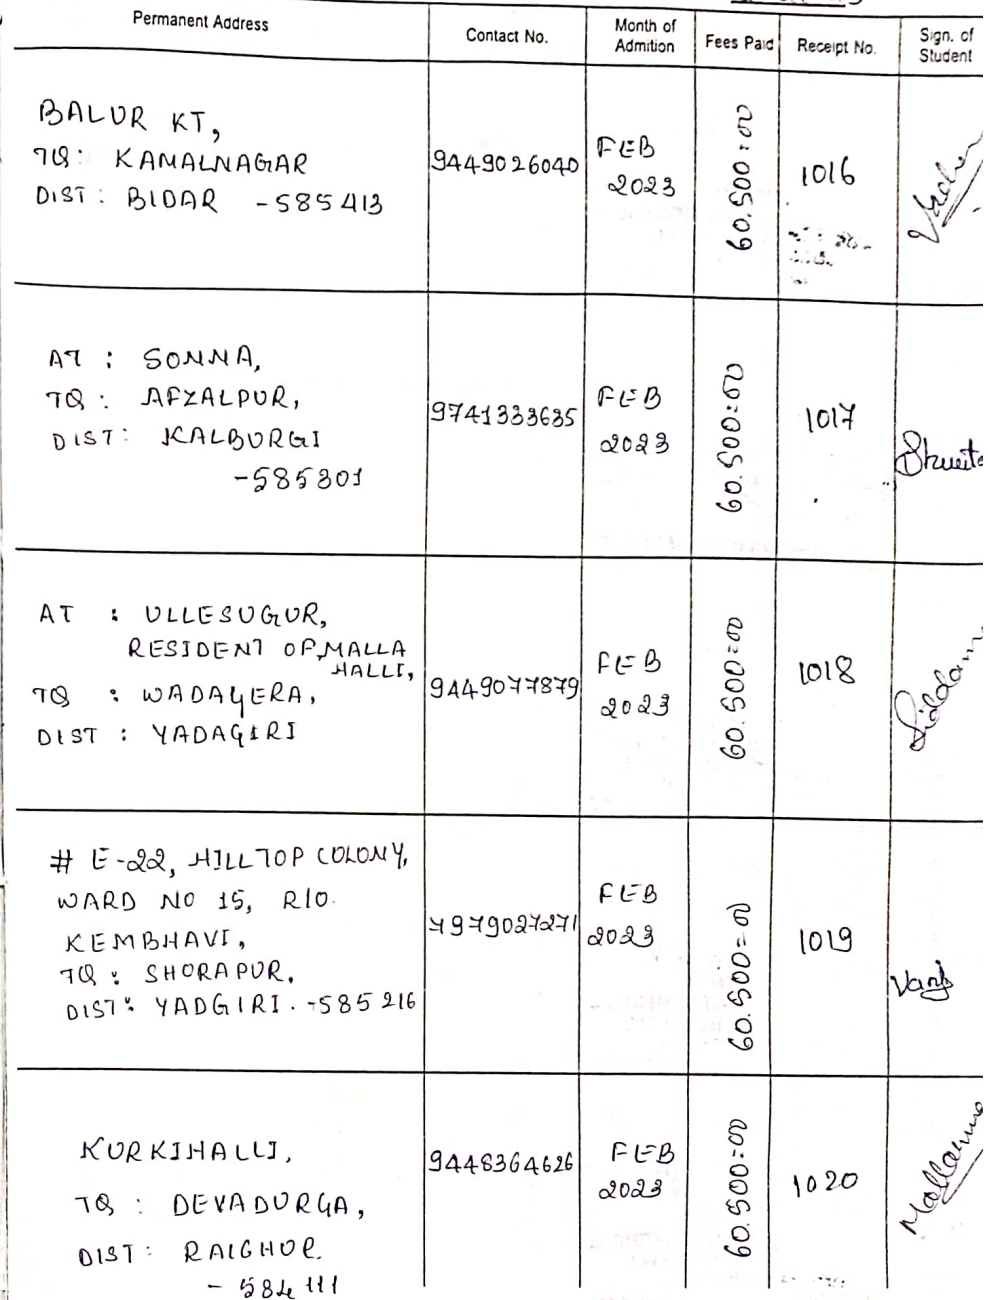 Permanent Address Contact No. Month of Admition Fees Paid Receipt No. Sign. of Student
BALUR KT,
TQ: KAMALNAGAR
DIST: BIDAR -585413
9449026040
FEB
2023
60.500=00
1016
AT : SONNA,
TQ: AFZALPUR,
DIST: KALBURGI
-585301
9741333635
FEB
2023
60.500=00
1017
Shweta
AT : ULLESUGUR,
RESIDENT OF MALLA
HALLI,
TQ : WADAGERA,
DIST : YADAGIRI
9449077879
FEB
2023
60.500=00
1018
Siddam
# E-22, HILLTOP COLONY,
WARD NO 15, R/O.
KEMBHAVI,
TQ: SHORAPUR.
DIST: YADGIRI. -585 216
7979027271
FEB
2023
60.500=00
1019
KURKIHALLI,
TQ : DEVADURGA,
DIST: RAICHUR.
- 584 111
9448364626
FEB
2023
60.500=00
1020
Mallamma